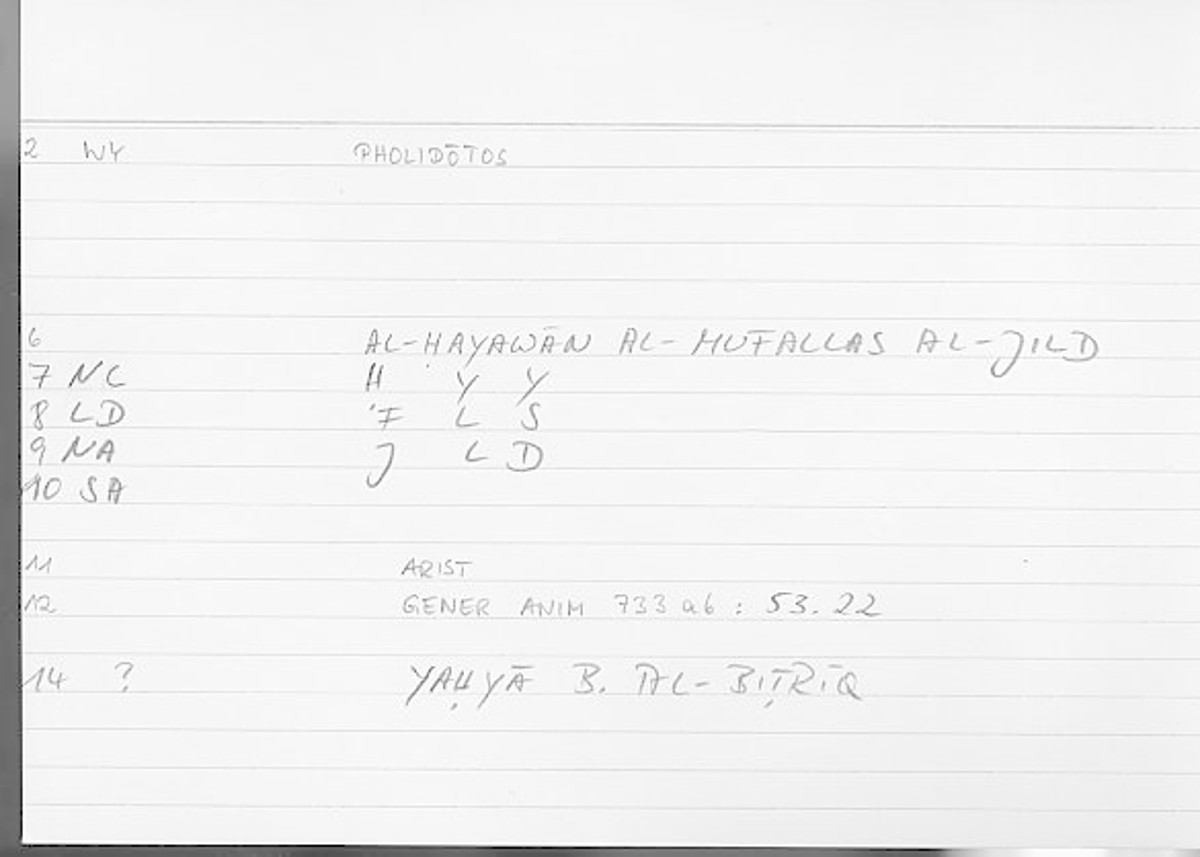 2 WY PHOLIDŌTOS
6 AL-ḤAYAWĀN AL-MUFALLAS AL-JILD
7 NC H Y Y
8 LD 'F L S
9 NA J L D
10 SA
11 ARIST
12 GENER ANIM 733 a6 : 53.22
14 ? YAḤYĀ B. AL-BIṬRĪQ